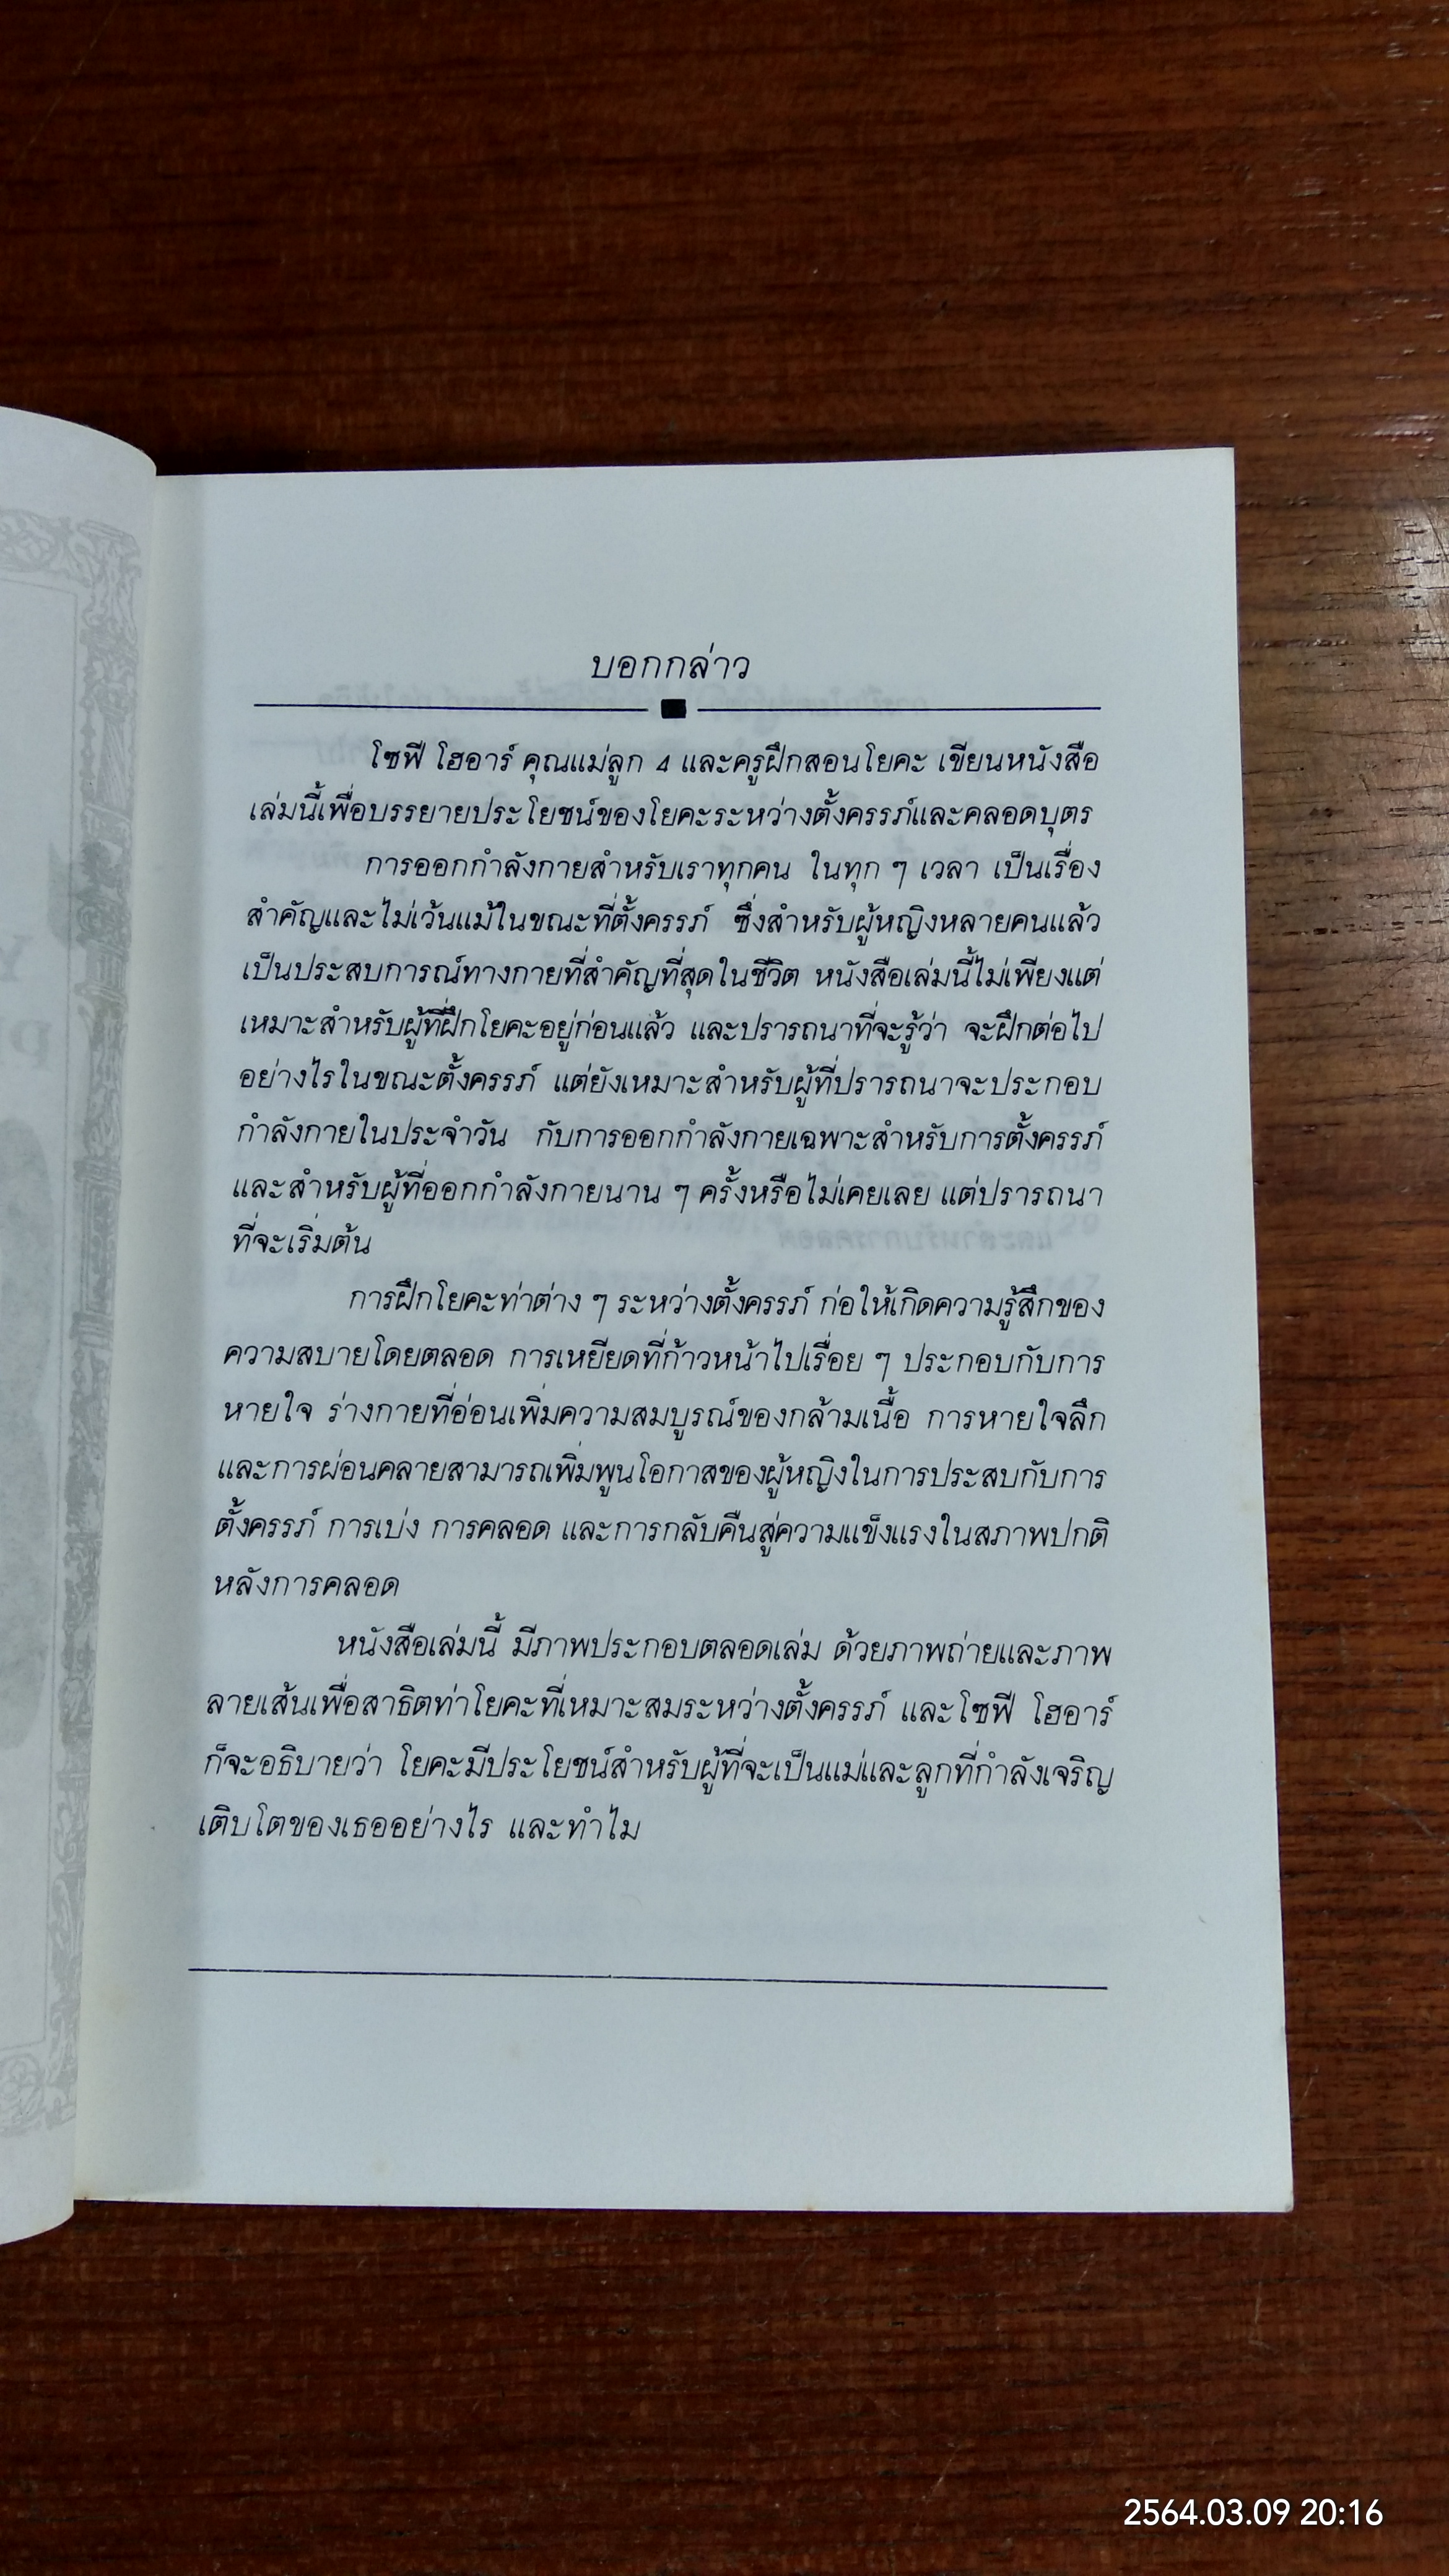 บอกกล่าว
โซฟี โฮอาร์ คุณแม่ลูก 4 และครูฝึกสอนโยคะ เขียนหนังสือ
เล่มนี้เพื่อบรรยายประโยชน์ของโยคะระหว่างตั้งครรภ์และคลอดบุตร
การออกกำลังกายสำหรับเราทุกคน ในทุก ๆ เวลา เป็นเรื่อง
สำคัญและไม่เว้นแม้ในขณะที่ตั้งครรภ์ ซึ่งสำหรับผู้หญิงหลายคนแล้ว
เป็นประสบการณ์ทางกายที่สำคัญที่สุดในชีวิต หนังสือเล่มนี้ไม่เพียงแต่
เหมาะสำหรับผู้ที่ฝึกโยคะอยู่ก่อนแล้ว และปรารถนาที่จะรู้ว่า จะฝึกต่อไป
อย่างไรในขณะตั้งครรภ์ แต่ยังเหมาะสำหรับผู้ที่ปรารถนาจะประกอบ
กำลังกายในประจำวัน กับการออกกำลังกายเฉพาะสำหรับการตั้งครรภ์
และสำหรับผู้ที่ออกกำลังกายนาน ๆ ครั้งหรือไม่เคยเลย แต่ปรารถนา
ที่จะเริ่มต้น
การฝึกโยคะท่าต่าง ๆ ระหว่างตั้งครรภ์ ก่อให้เกิดความรู้สึกของ
ความสบายโดยตลอด การเหยียดที่ก้าวหน้าไปเรื่อย ๆ ประกอบกับการ
หายใจ ร่างกายที่อ่อนเพิ่มความสมบูรณ์ของกล้ามเนื้อ การหายใจลึก
และการผ่อนคลายสามารถเพิ่มพูนโอกาสของผู้หญิงในการประสบกับการ
ตั้งครรภ์ การเบ่ง การคลอด และการกลับคืนสู่ความแข็งแรงในสภาพปกติ
หลังการคลอด
หนังสือเล่มนี้ มีภาพประกอบตลอดเล่ม ด้วยภาพถ่ายและภาพ
ลายเส้นเพื่อสาธิตท่าโยคะที่เหมาะสมระหว่างตั้งครรภ์ และโซฟี โฮอาร์
ก็จะอธิบายว่า โยคะมีประโยชน์สำหรับผู้ที่จะเป็นแม่และลูกที่กำลังเจริญ
เติบโตของเธออย่างไร และทำไม
2564.03.09 20:16